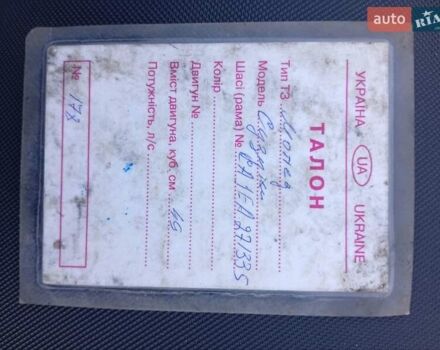 УКРАЇНА UA UKRAINE
ТАЛОН
Тип ТЗ Мопед
Модель Судзуки
Шасі (рама) № CA1EA 271335
Колір
Двигун №
Вміст двигуна, куб. см 49
Потужність, л/с
№ 178
auto RIA